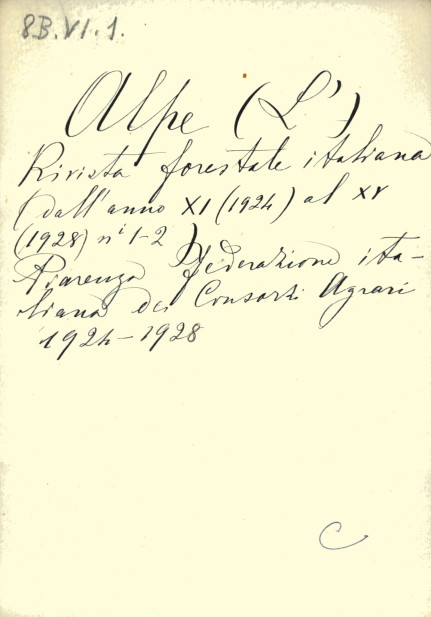 8B.VI.1.
Alpe (L')
Rivista forestale italiana
(dall'anno XI (1924) al XV
(1928) ni 1-2)
Piacenza Federazione ita-
liana dei Consorzi Agrari
1924-1928
C